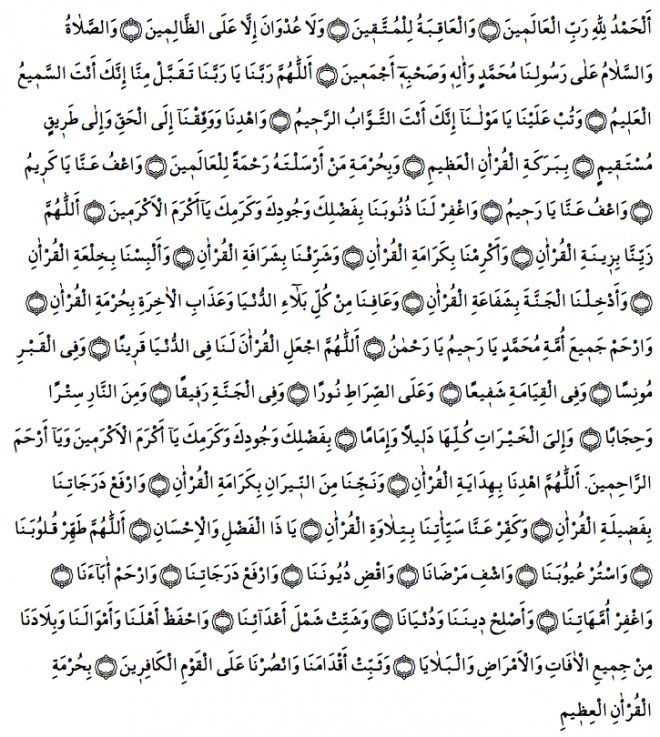 اَلْحَمْدُ لِلّٰهِ رَبِّ الْعَالَمٖينَ ۝ وَالْعَاقِبَةُ لِلْمُتَّقٖينَ ۝ وَلَا عُدْوَانَ اِلَّا عَلَى الظَّالِمٖينَ ۝ وَالصَّلَاةُ
وَالسَّلَامُ عَلٰى رَسُولِنَا مُحَمَّدٍ وَاٰلِهٖ وَصَحْبِهٖٓ اَجْمَعٖينَ ۝ اَللّٰهُمَّ رَبَّنَا يَا رَبَّنَا تَقَبَّلْ مِنَّا اِنَّكَ اَنْتَ السَّمٖيعُ
الْعَلٖيمُ ۝ وَتُبْ عَلَيْنَا يَا مَوْلٰينَٓا اِنَّكَ اَنْتَ التَّوَّابُ الرَّحٖيمُ ۝ وَاهْدِنَا وَوَفِّقْنَٓا اِلَى الْحَقِّ وَاِلٰى طَرٖيقٍ
مُسْتَقٖيمٍ ۝ بِبَرَكَةِ الْقُرْاٰنِ الْعَظٖيمِ ۝ وَبِحُرْمَةِ مَنْ اَرْسَلْتَهُ رَحْمَةً لِلْعَالَمٖينَ ۝ وَاعْفُ عَنَّا يَا كَرٖيمُ
۝ وَاعْفُ عَنَّا يَا رَحٖيمُ ۝ وَاغْفِرْ لَنَا ذُنُوبَنَا بِفَضْلِكَ وَجُودِكَ وَكَرَمِكَ يَٓا اَكْرَمَ الْاَكْرَمٖينَ ۝ اَللّٰهُمَّ
زَيِّنَّا بِزٖينَةِ الْقُرْاٰنِ ۝ وَاَكْرِمْنَا بِكَرَامَةِ الْقُرْاٰنِ ۝ وَشَرِّفْنَا بِشَرَافَةِ الْقُرْاٰنِ ۝ وَاَلْبِسْنَا بِخِلْعَةِ الْقُرْاٰنِ
۝ وَاَدْخِلْنَا الْجَنَّةَ بِشَفَاعَةِ الْقُرْاٰنِ ۝ وَعَافِنَا مِنْ كُلِّ بَلَٓاءِ الدُّنْيَا وَعَذَابِ الْاٰخِرَةِ بِحُرْمَةِ الْقُرْاٰنِ ۝
وَارْحَمْ جَمٖيعَ اُمَّةِ مُحَمَّدٍ يَا رَحٖيمُ يَا رَحْمٰنُ ۝ اَللّٰهُمَّ اجْعَلِ الْقُرْاٰنَ لَنَا فِى الدُّنْيَا قَرٖينًا ۝ وَفِى الْقَبْرِ
مُونِسًا ۝ وَفِى الْقِيَامَةِ شَفٖيعًا ۝ وَعَلَى الصِّرَاطِ نُورًا ۝ وَفِى الْجَنَّةِ رَفٖيقًا ۝ وَمِنَ النَّارِ سِتْرًا
وَحِجَابًا ۝ وَاِلَى الْخَيْرَاتِ كُلِّهَا دَلٖيلًا وَاِمَامًا ۝ بِفَضْلِكَ وَجُودِكَ وَكَرَمِكَ يَٓا اَكْرَمَ الْاَكْرَمٖينَ وَيَٓا اَرْحَمَ
الرَّاحِمٖينَ. اَللّٰهُمَّ اهْدِنَا بِهِدَايَةِ الْقُرْاٰنِ ۝ وَنَجِّنَا مِنَ النّٖيرَانِ بِكَرَامَةِ الْقُرْاٰنِ ۝ وَارْفَعْ دَرَجَاتِنَا
بِفَضٖيلَةِ الْقُرْاٰنِ ۝ وَكَفِّرْ عَنَّا سَيِّاٰتِنَا بِتِلَاوَةِ الْقُرْاٰنِ ۝ يَا ذَا الْفَضْلِ وَالْاِحْسَانِ ۝ اَللّٰهُمَّ طَهِّرْ قُلُوبَنَا
۝ وَاسْتُرْ عُيُوبَنَا ۝ وَاشْفِ مَرْضَانَا ۝ وَاقْضِ دُيُونَنَا ۝ وَارْفَعْ دَرَجَاتِنَا ۝ وَارْحَمْ اٰبَٓاءَنَا ۝
وَاغْفِرْ اُمَّهَاتِنَا ۝ وَاَصْلِحْ دٖينَنَا وَدُنْيَانَا ۝ وَشَتِّتْ شَمْلَ اَعْدَٓائِنَا ۝ وَاحْفَظْ اَهْلَنَا وَاَمْوَالَنَا وَبِلَادَنَا
مِنْ جَمٖيعِ الْاٰفَاتِ وَالْاَمْرَاضِ وَالْبَلَايَا ۝ وَثَبِّتْ اَقْدَامَنَا وَانْصُرْنَا عَلَى الْقَوْمِ الْكَافِرٖينَ ۝ بِحُرْمَةِ
الْقُرْاٰنِ الْعِظٖيمِ